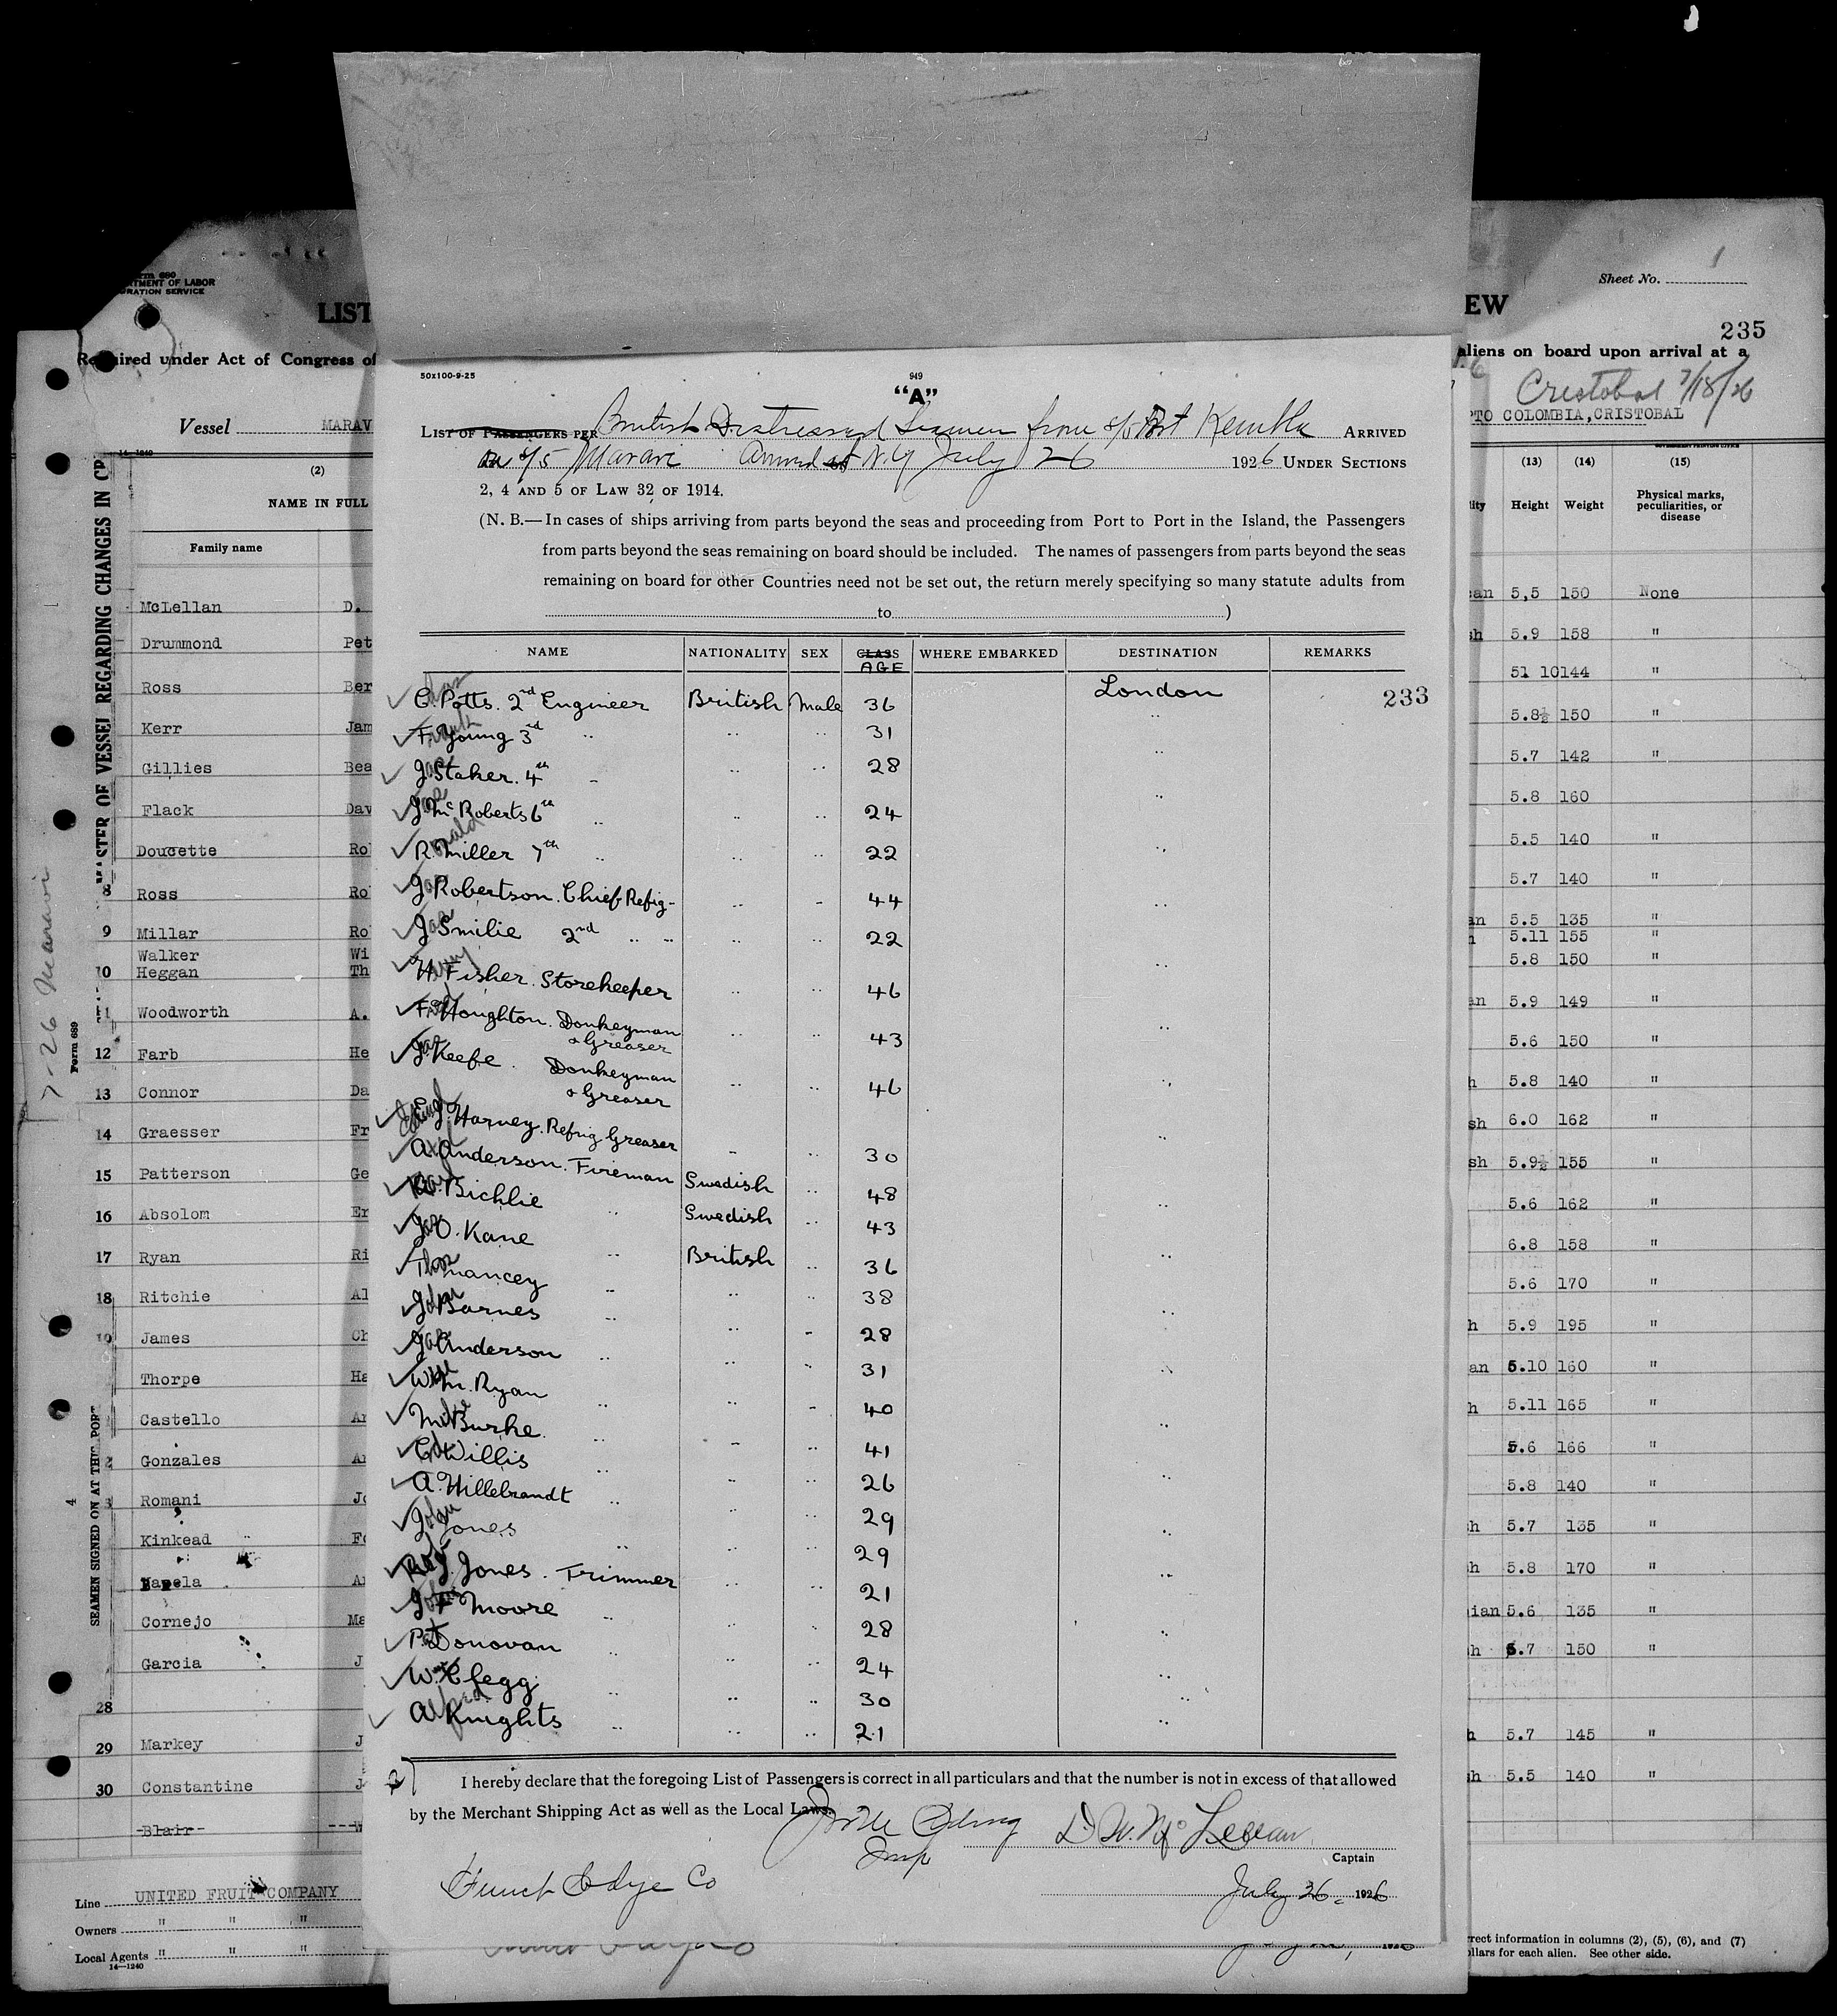 Sheet No. 1
235
Form 680
LIST
EW
Required under Act of Congress of
aliens on board upon arrival at a
Cristobal 7/18/26
Vessel MARAV
PTO COLOMBIA, CRISTOBAL
14-1240
(2)
(13) (14) (15)
NAME IN FULL
Height Weight Physical marks, peculiarities, or disease
Family name
McLellan D.
Drummond Pet
Ross Ber
Kerr Jam
Gillies Bea
Flack Dav
Doucette Ro
8 Ross Ro
9 Millar Ro
Walker Wi
10 Heggan Th
11 Woodworth A.
12 Farb He
13 Connor Da
14 Graesser Fr
15 Patterson Ge
16 Absolom Er
17 Ryan Ri
18 Ritchie Al
19 James Ch
Thorpe Ha
Castello An
Gonzales
Romani Jo
Kinkead
Cornejo Ma
Garcia J
28
29 Markey J
30 Constantine J
Blair
Line UNITED FRUIT COMPANY
Owners " " "
Local Agents " " "
14-1240
7-26 Maravi
Form 689
MASTER OF VESSEL REGARDING CHANGES IN
SEAMEN SIGNED ON AT THIS PORT
4
50x100-9-25
949
"A"
LIST OF PASSENGERS PER British Distressed Seamen from s/s Port Kembla ARRIVED
on S/S Maravi Arrived at N.Y July 26 1926 UNDER SECTIONS
2, 4 AND 5 OF LAW 32 OF 1914.
(N. B.—In cases of ships arriving from parts beyond the seas and proceeding from Port to Port in the Island, the Passengers
from parts beyond the seas remaining on board should be included. The names of passengers from parts beyond the seas
remaining on board for other Countries need not be set out, the return merely specifying so many statute adults from
to )
NAME NATIONALITY SEX CLASS AGE WHERE EMBARKED DESTINATION REMARKS
C. Potts. 2nd Engineer British Male 36 London 233
F. Young 3rd " " " 31 "
J. Staker. 4th " " " 28 "
J. McRoberts 6th " " " 24 "
R. Miller 7th " " " 22 "
J. Robertson. Chief Refig- " " 44 "
J. Smilie 2nd " " " " 22 "
H. Fisher. Storekeeper " " 46 "
F. Houghton. Donkeyman & Greaser " " 43 "
J. Keefe. Donkeyman & Greaser " " 46 "
E.J. Harney. Refrig Greaser " " 30 "
A. Anderson. Fireman Swedish " 48 "
Bichlie " Swedish " 43 "
J. O. Kane " British " 36 "
Thos Mancey " " " 38 "
J. Barnes " " " 28 "
J. Anderson " " " 31 "
Wm. Ryan " " " 40 "
M. Burke. " " " 41 "
C. Willis " " " 26 "
A. Hillebrandt " " " 29 "
J. Jones " " " 29 "
R. J. Jones. Trimmer " " 21 "
J. F. Moore " " " 28 "
P. Donovan " " " 24 "
W. Clegg " " " 30 "
A. Knights " " " 21 "
27
I hereby declare that the foregoing List of Passengers is correct in all particulars and that the number is not in excess of that allowed
by the Merchant Shipping Act as well as the Local Laws.
Insp
Captain
Funch Edye Co
July 26, 1926
5,5 150 None
5.9 158 "
51 10 144 "
5.8½ 150 "
5.7 142 "
5.8 160
5.5 140 "
5.7 140 "
5.5 135 "
5.11 155 "
5.8 150 "
5.9 149 "
5.6 150 "
5.8 140 "
6.0 162 "
5.9½ 155 "
5.6 162 "
6.8 158 "
5.6 170 "
5.9 195 "
5.10 160 "
5.11 165 "
5.6 166 "
5.8 140 "
5.7 135 "
5.8 170 "
5.6 135 "
5.7 150 "
5.7 145 "
5.5 140 "
rrect information in columns (2), (5), (6), and (7)
ollars for each alien. See other side.